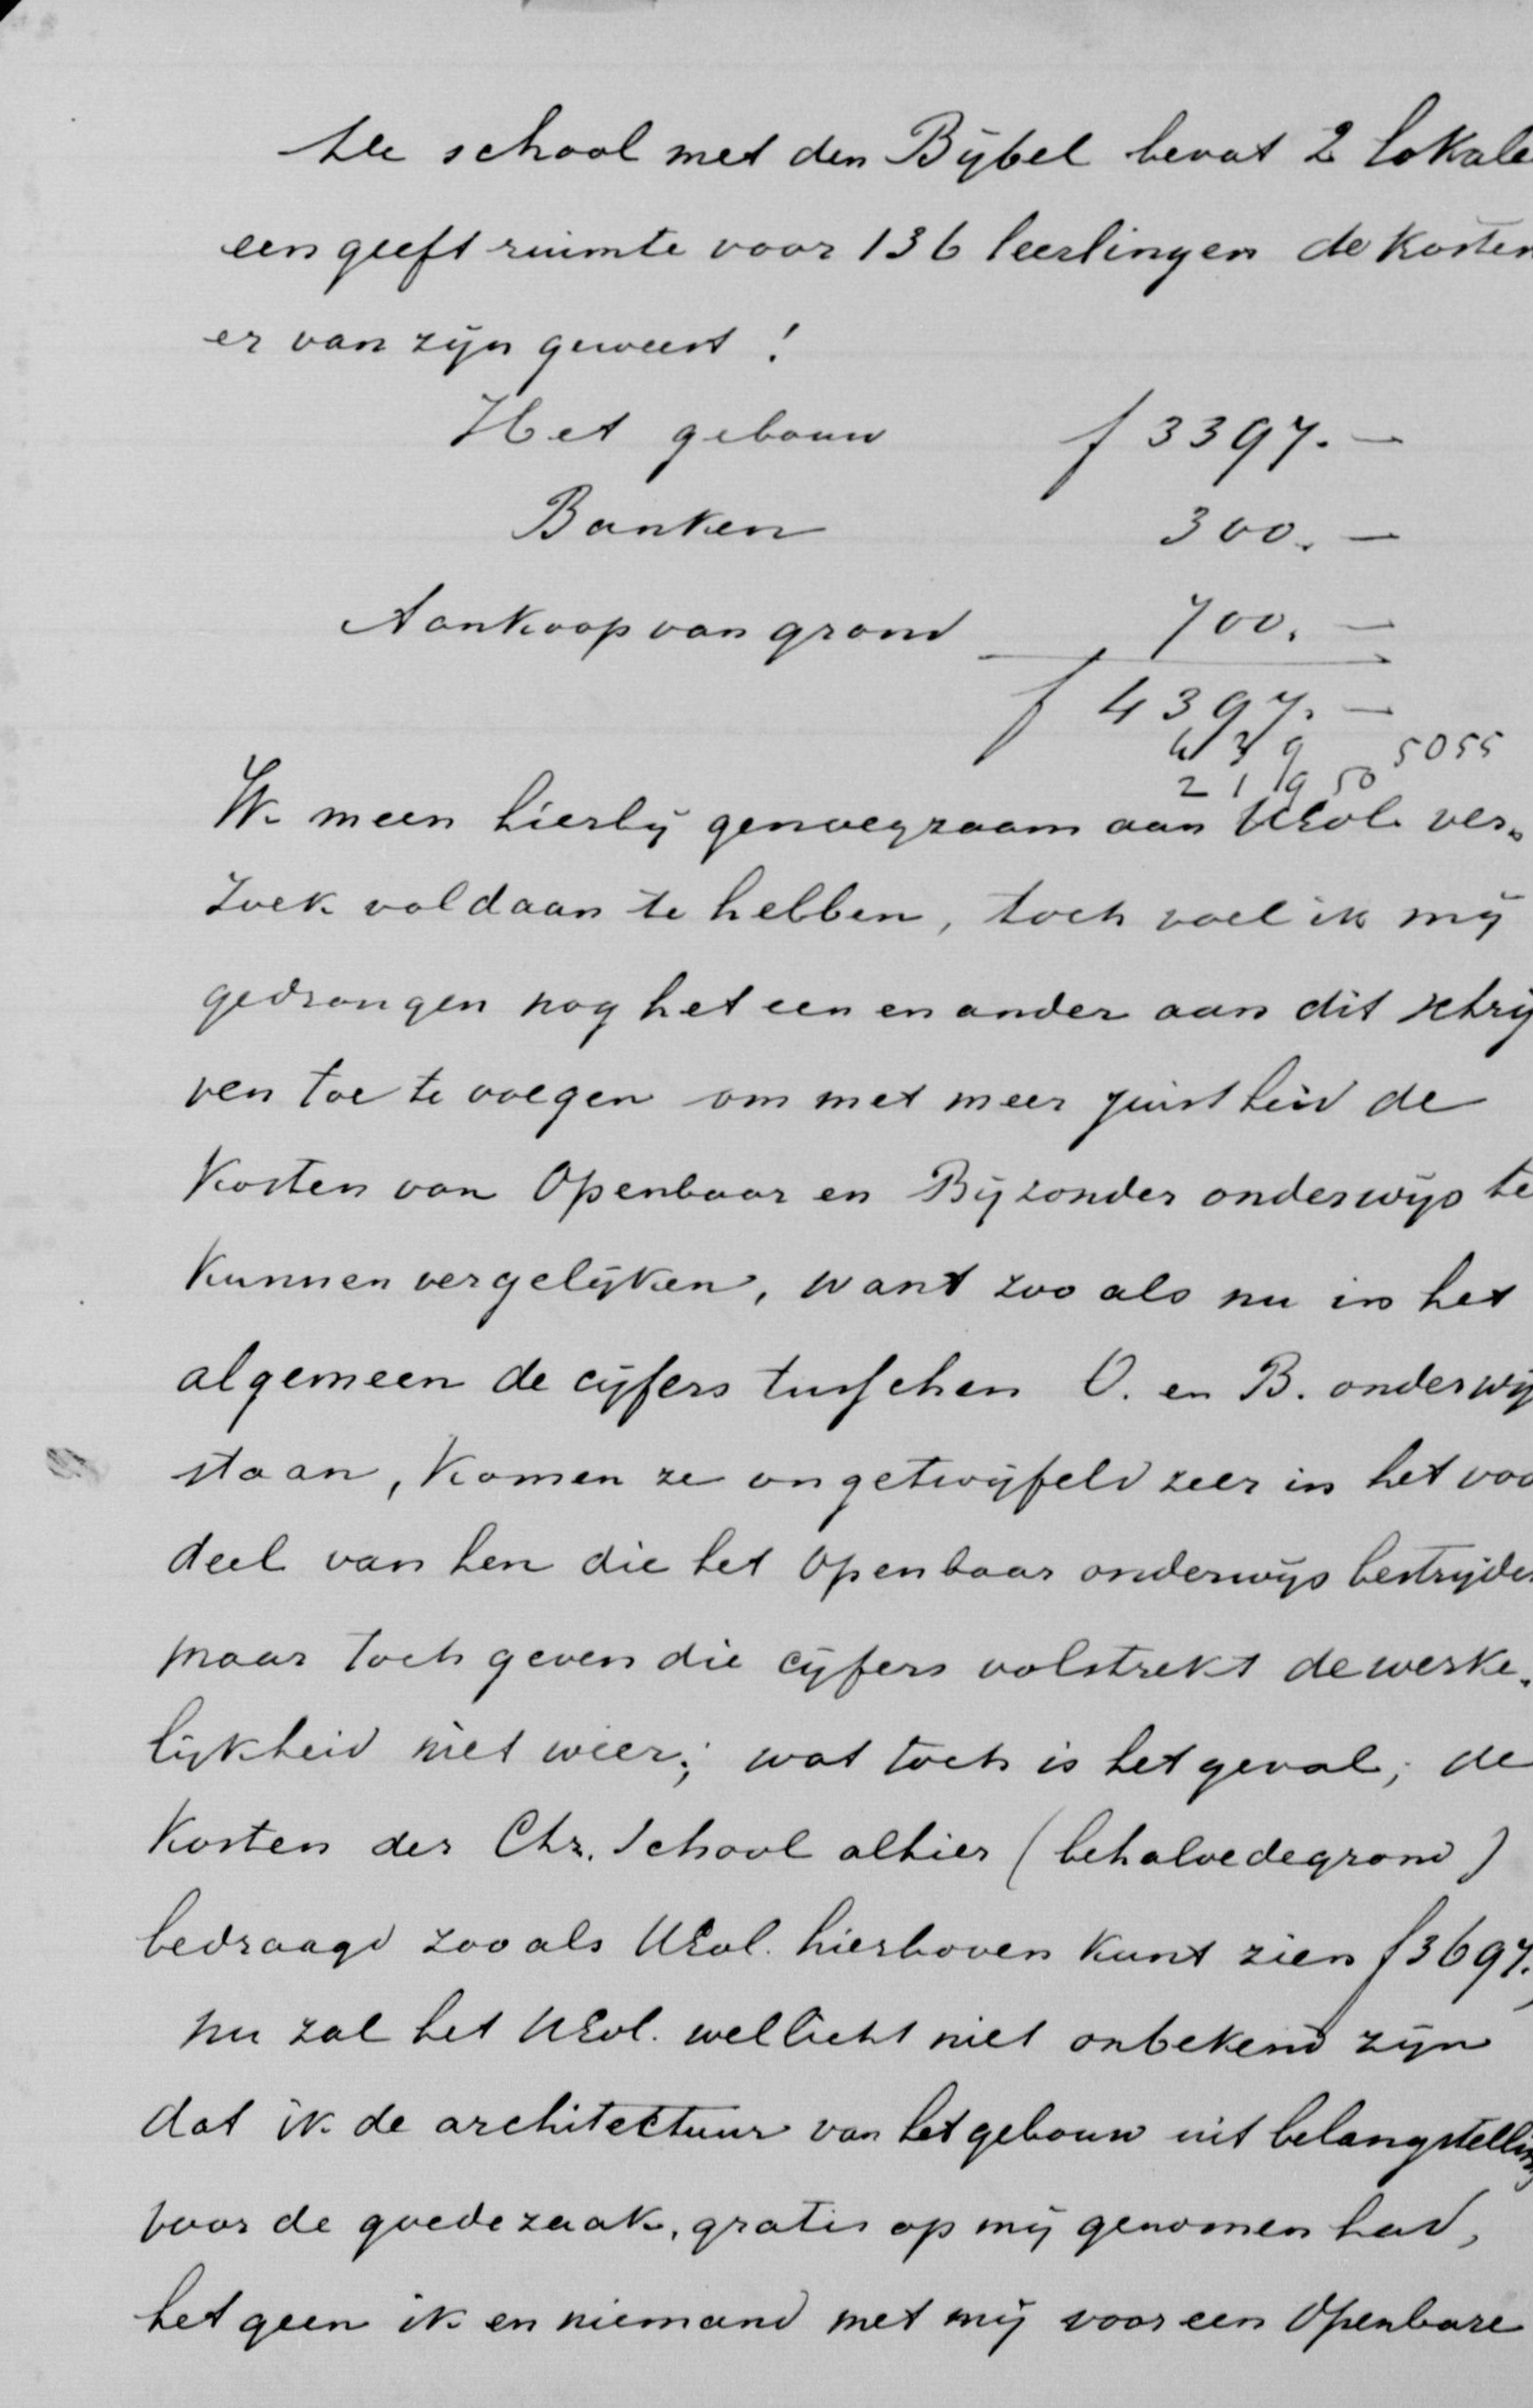 De school met den Bijbel bevat 2 lokale
een geeft ruimte voor 136 leerlingen de kosten
er van zijn geweest :
Het gebouw f 3397.—
Banken 300.—
Aankoop van grond 700.—
f 4397.—
5055
2 1 9 50
Ik meen hierbij genoegzaam aan UEol. ver-
zoek voldaan te hebben, toch voel ik mij
gedrongen nog het een en ander aan dit schrij
ven toe te voegen om met meer juistheid de
kosten van Openbaar en Bijzonder onderwijs te
kunnen vergelijken, want zoo als nu in het
algemeen de cijfers tusschen O. en B. onderwij
staan, komen ze ongetwijfeld zeer in het voo
deel van hen die het Openbaar onderwijs bestrijde
maar toch geven die cijfers volstrekt de werke-
lijkheid niet weer; wat toch is het geval; de
kosten der Chr. School alhier (behalve de grond)
bedraagd zooals UEol. hierboven kunt zien f 3697.
nu zal het UEol. wellicht niet onbekend zijn
dat ik de architectuur van het gebouw uit belangstelling
voor de goede zaak, gratis op mij genomen had,
het geen ik en niemand met mij voor een Openbare